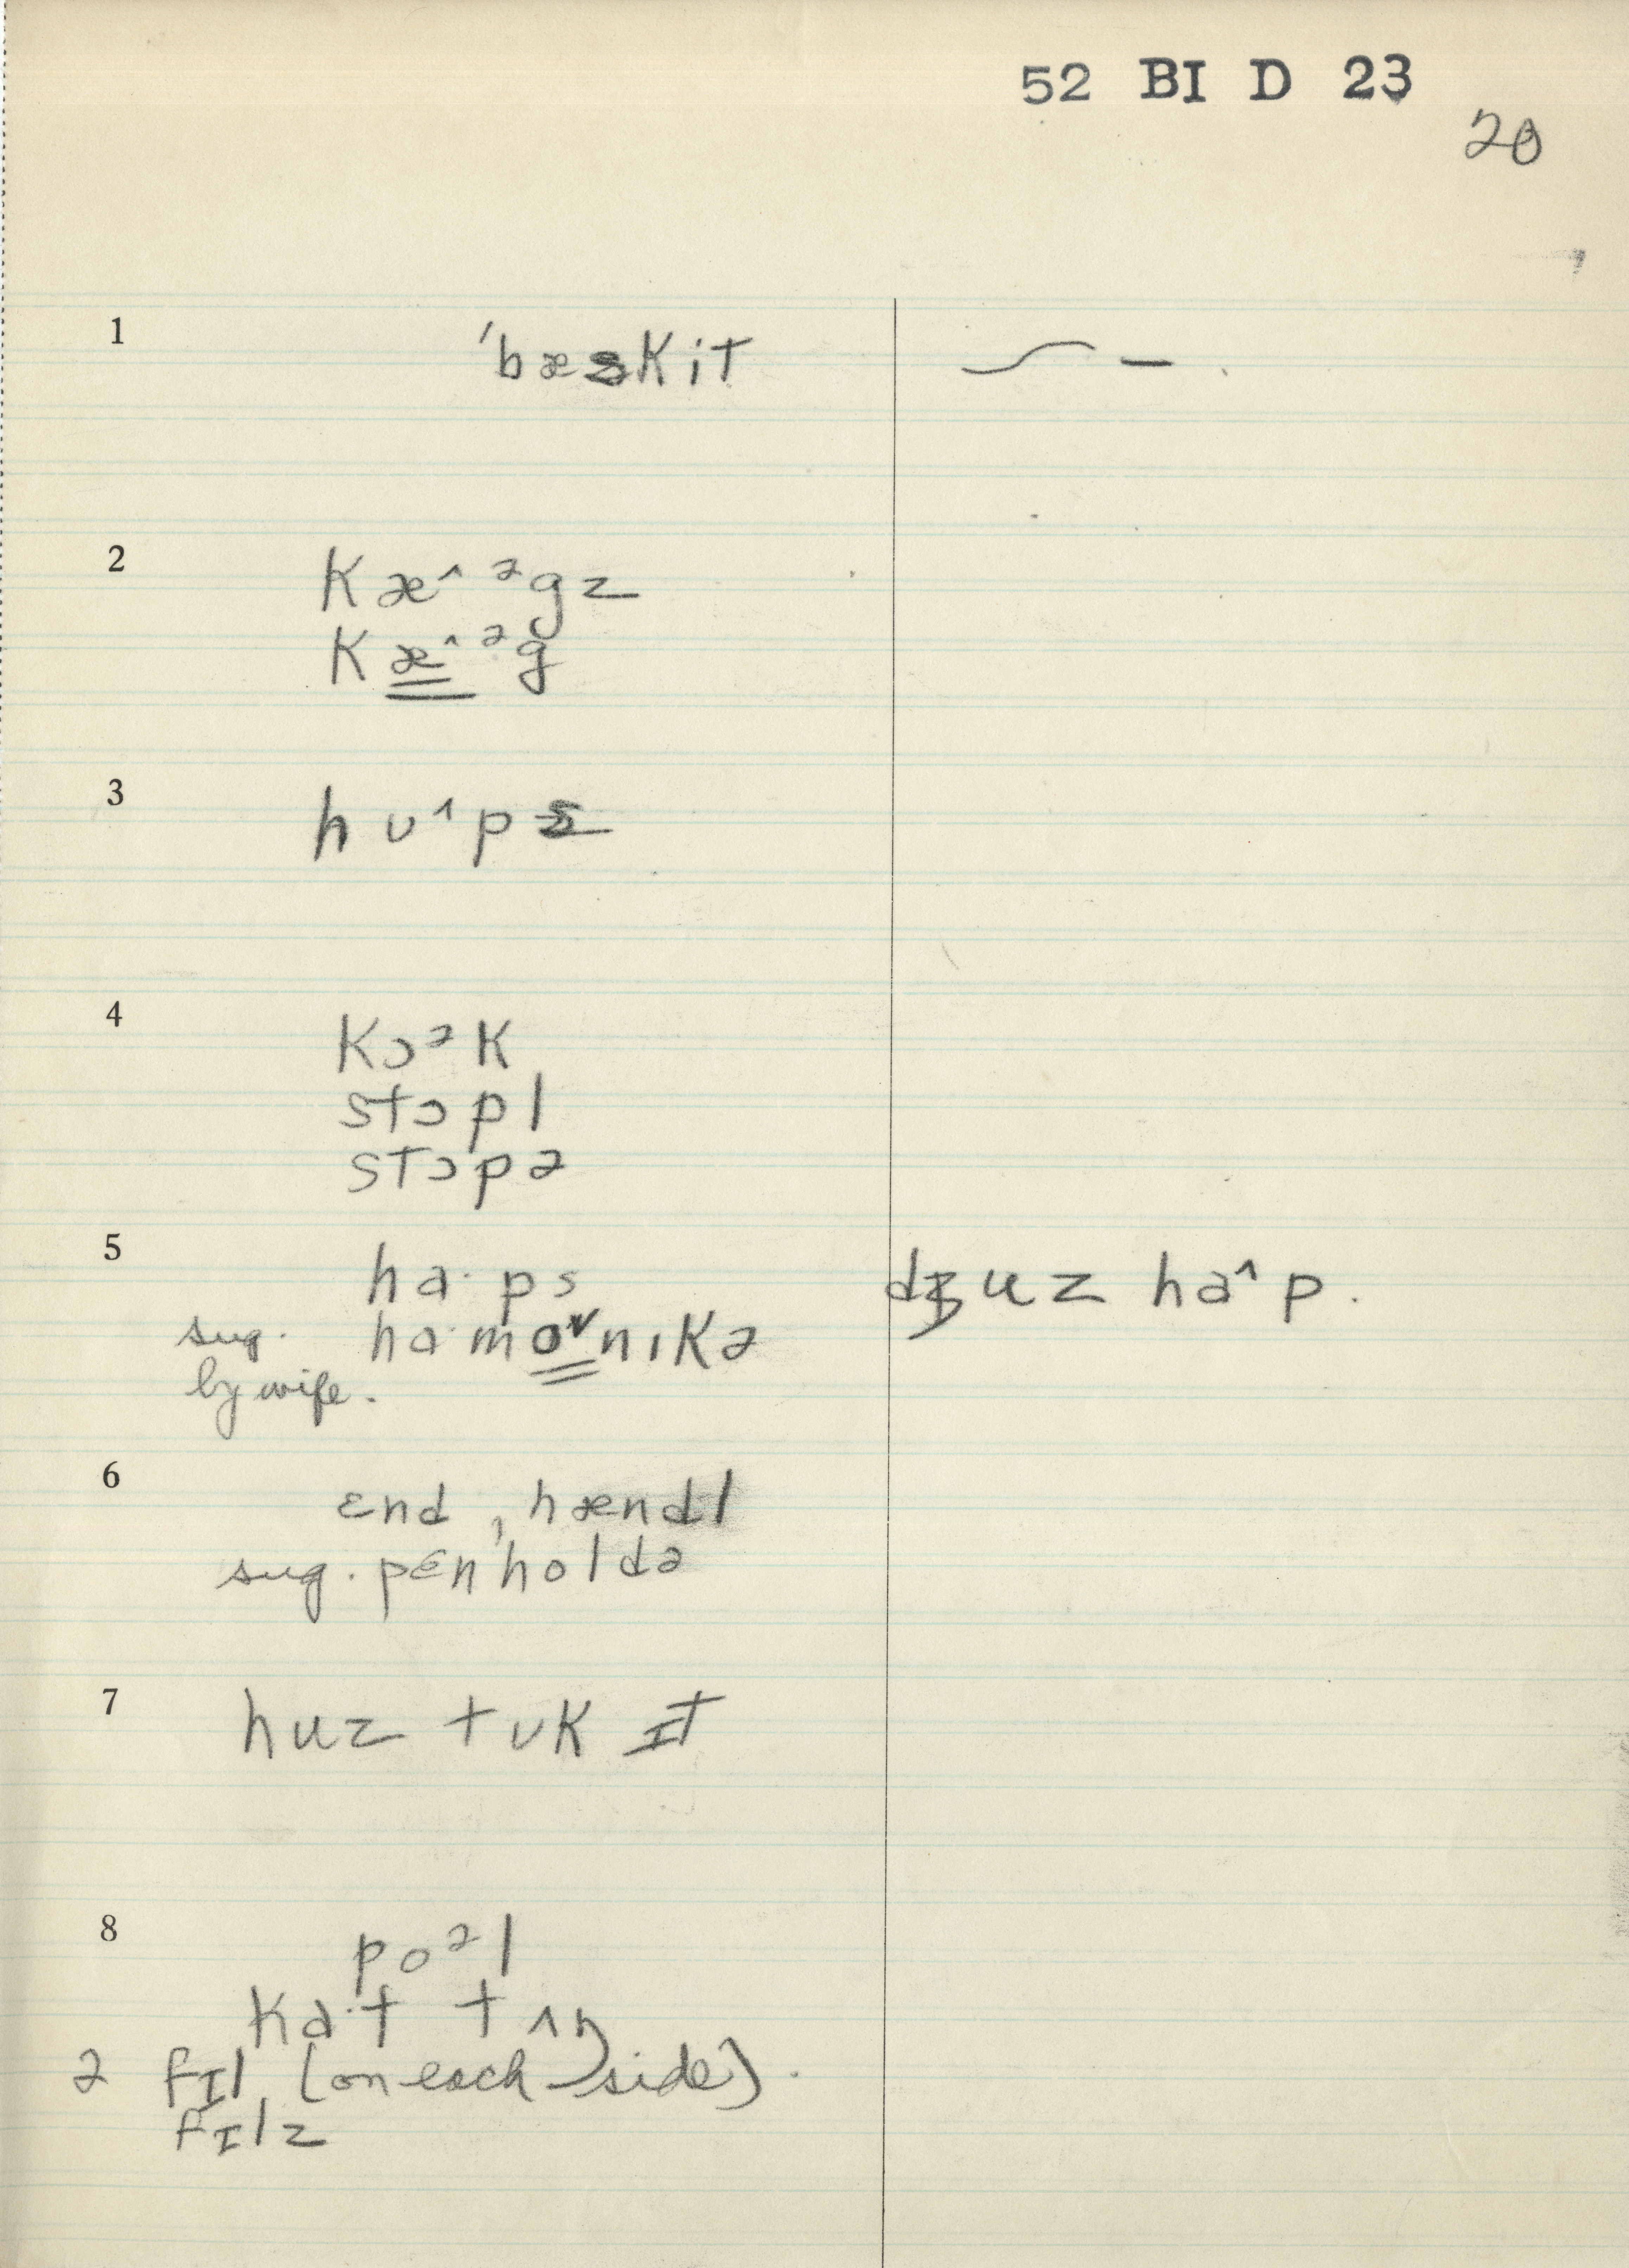 52 BI D 23
20
1 ˈbæskit
2 kæ^ᵊgz
kæ^ᵊg
3 hʊ^ps
4 kɔᵊk
stɔpl
stɔpə
5 ha·ps dʒuz ha^p.
sug. ha·moˇnɪkə
by wife.
6 ɛnd, hændl
sug. pɛnholdə
7 huz tʊk ɪt
8 poᵊl
ka·t tʌŋ
2 fɪl (on each side).
fɪlz